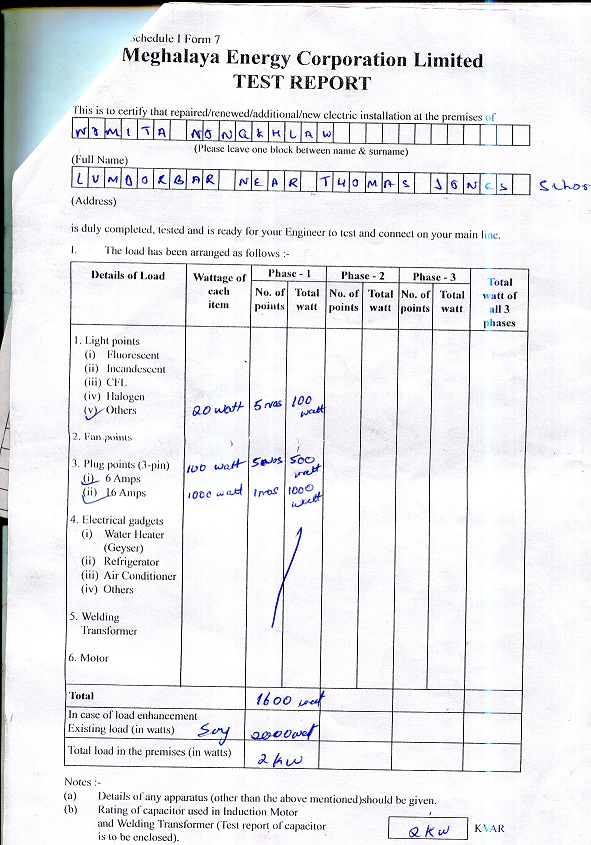 Schedule I Form 7
Meghalaya Energy Corporation Limited
TEST REPORT
This is to certify that repaired/renewed/additional/new electric installation at the premises of
NAMITA NONGKHLAW
(Please leave one block between name & surname)
(Full Name)
LUMDORBAR NEAR THOMAS JONES School
(Address)
is duly completed, tested and is ready for your Engineer to test and connect on your main line.
I. The load has been arranged as follows :-
Details of Load Wattage of each item Phase - 1 Phase - 2 Phase - 3 Total watt of all 3 phases
No. of points Total watt No. of points Total watt No. of points Total watt
1. Light points
(i) Fluorescent
(ii) Incandescent
(iii) CFL
(iv) Halogen
(v) Others 20 watt 5 nos 100 watt
2. Fan points
3. Plug points (3-pin) 100 watt 5 nos 500 watt
(i) 6 Amps
(ii) 16 Amps 1000 watt 1 nos 1000 watt
4. Electrical gadgets
(i) Water Heater
(Geyser)
(ii) Refrigerator
(iii) Air Conditioner
(iv) Others
5. Welding
Transformer
6. Motor
Total 1600 watt
In case of load enhancement
Existing load (in watts) Say 2000 watt
Total load in the premises (in watts) 2 KW
Notes :-
(a) Details of any apparatus (other than the above mentioned)should be given.
(b) Rating of capacitor used in Induction Motor
and Welding Transformer (Test report of capacitor
is to be enclosed). 2 KW KVAR